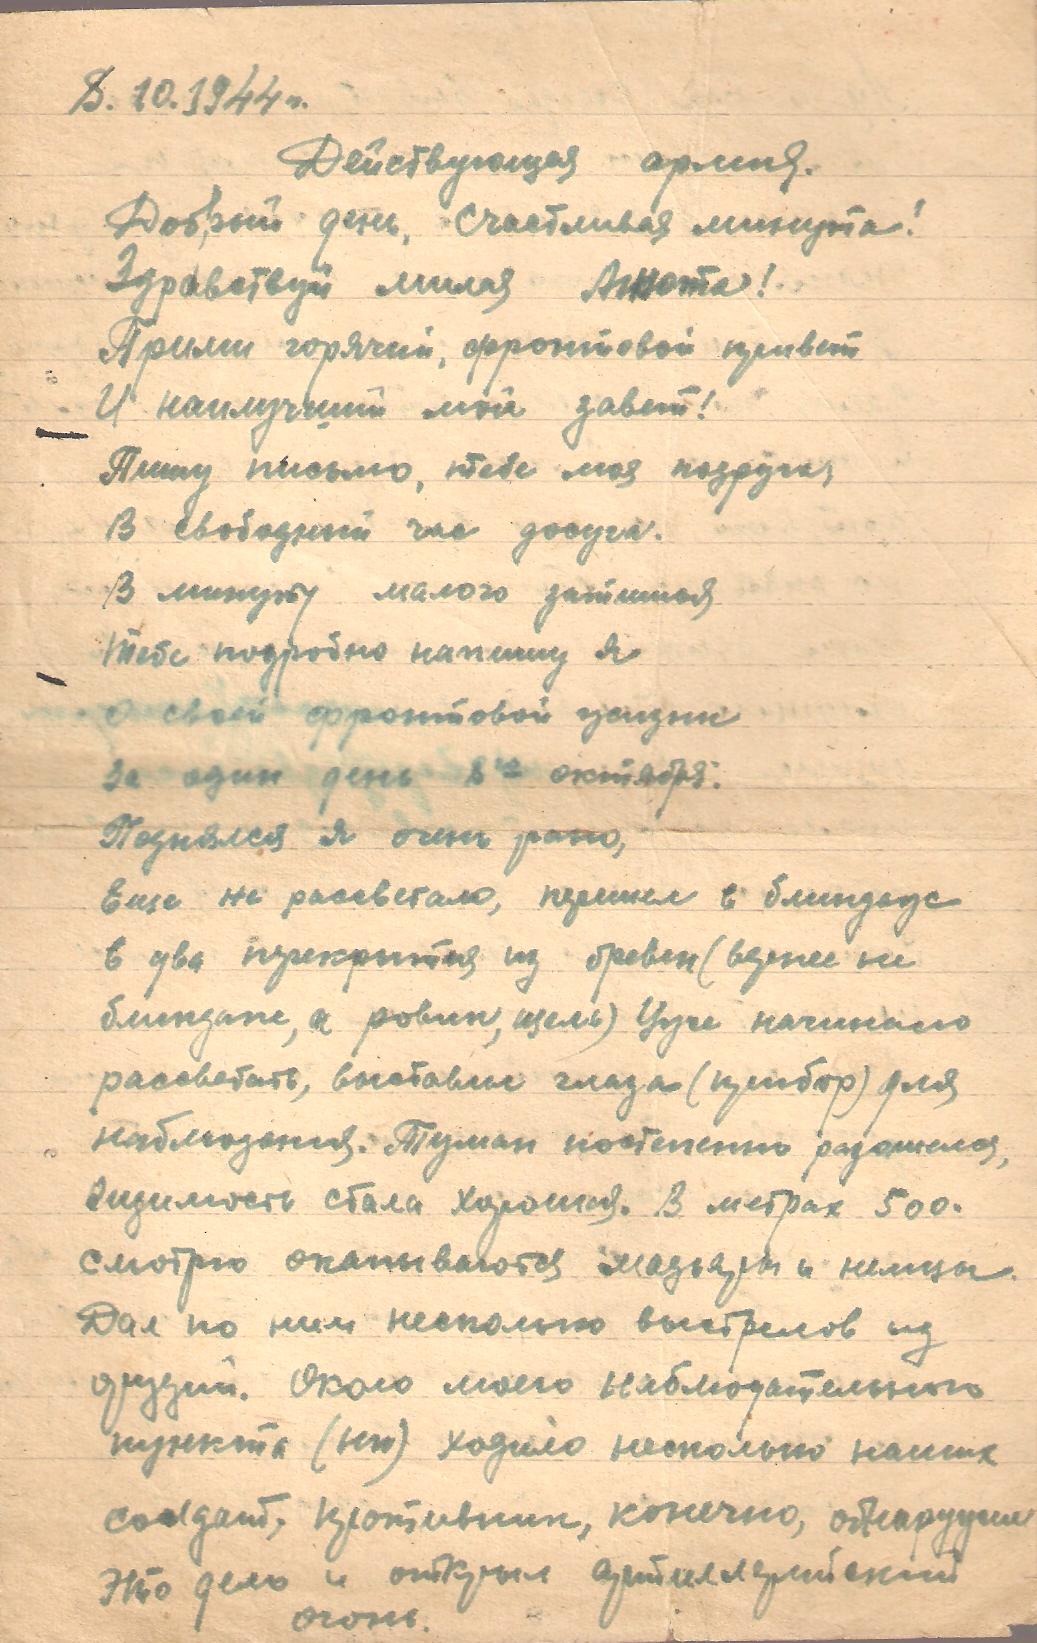 8.10.1944 г.
Действующая армия.
Добрый день, счастливая минута!
Здравствуй милая Анюта!
Прими горячий, фронтовой привет
И наилучший мой завет!
Пишу письмо, тебе моя подруга,
В свободный час досуга.
В минуту малого затишья
Тебе подробно напишу я
О своей фронтовой жизни
За один день 8го октября.
Поднялся я очень рано,
Еще не рассветало, пришел в блиндаж
в два перекрытия из бревен (вернее не
блиндаж, а ровик, щель) Уже начинало
рассветать, выставил глаза (прибор) для
наблюдения. Туман постепенно разошелся,
видимость стала хорошая. В метрах 500.
смотрю окапываются мадьяры и немцы.
Дал по ним несколько выстрелов из
орудий. Около моего наблюдательного
пункта (нп) ходило несколько наших
солдат, противник, конечно, обнаружил
Это дело и открыл артиллерийский
огонь.